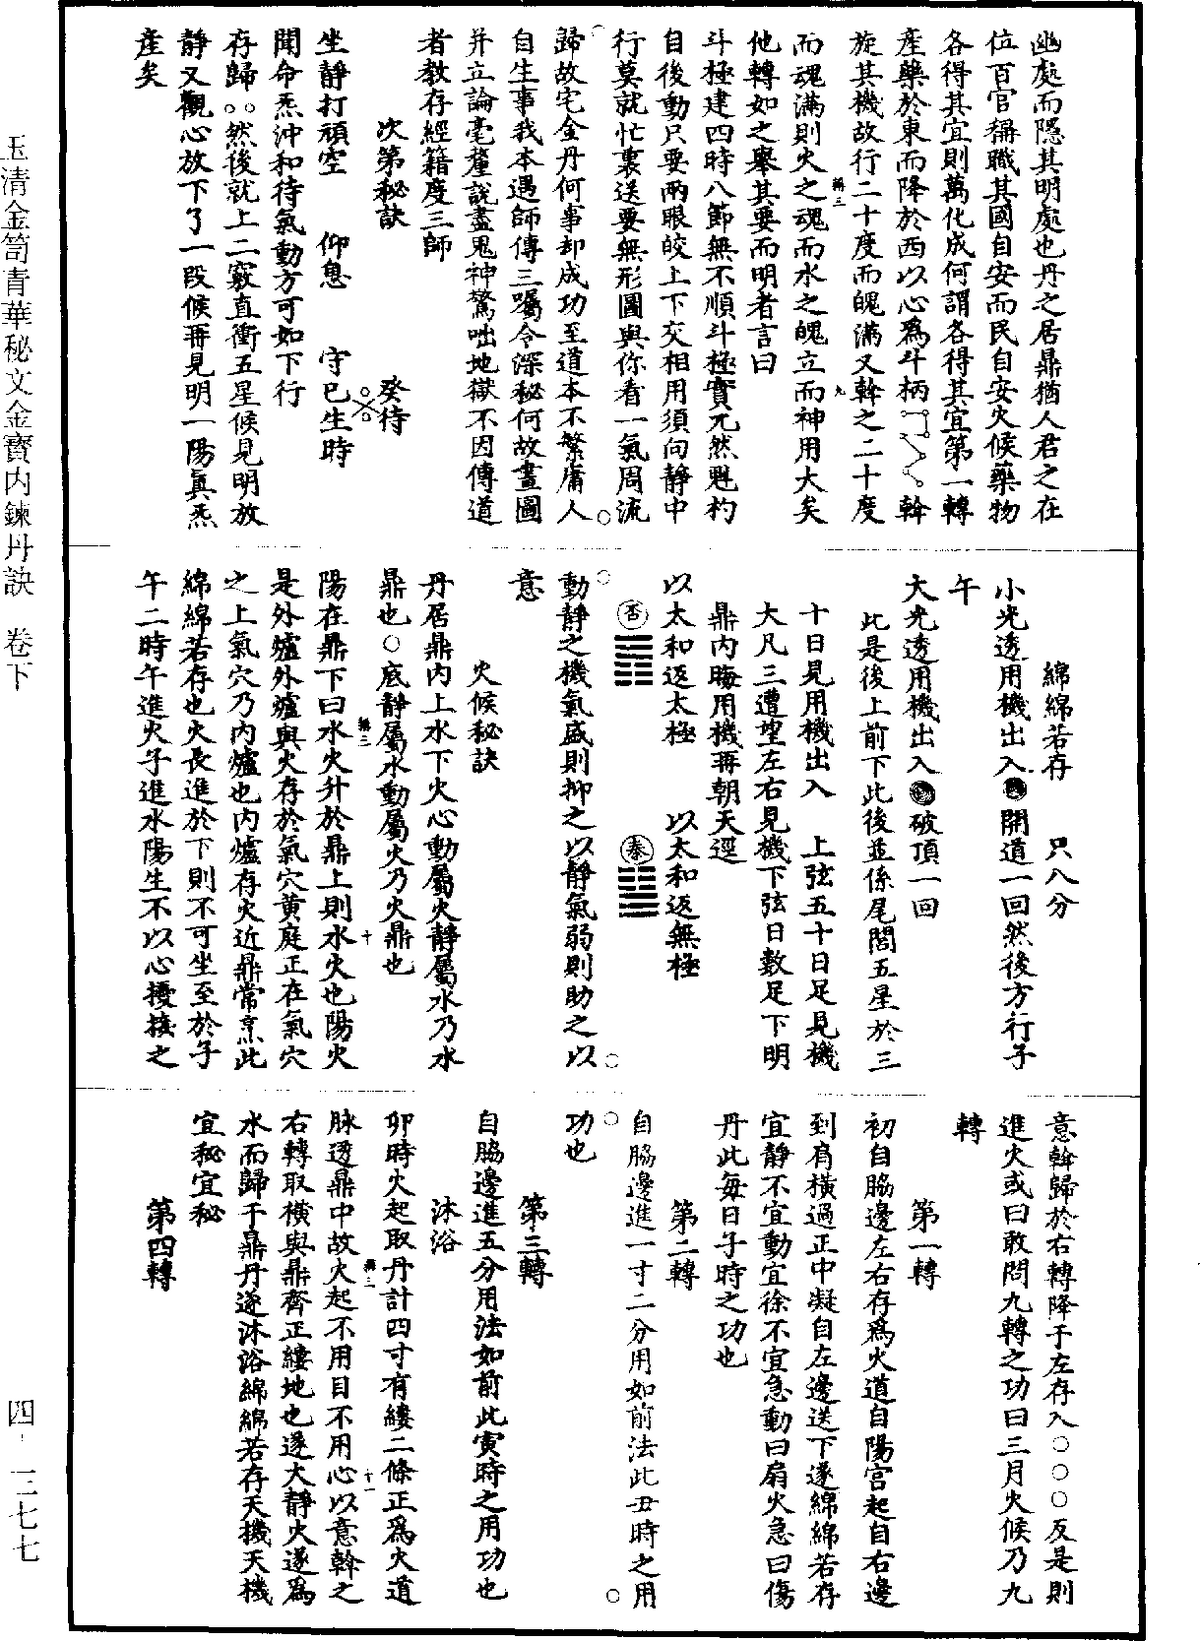 幽處而隱其明處也丹之居鼎猶人君之在
位百官稱職其國自安而民自安火候藥物
各得其宜則萬化成何謂各得其宜第一轉
產藥於東而降於西以心爲斗柄斡
旋其機故行二十度而魄滿又斡之二十度
而魂滿則火之魂而水之魄立而神用大矣
他轉如之舉其要而明者言曰
斗極建四時八節無不順斗極實兀然魁杓
自後動只要兩眼皎上下交相用須向靜中
行莫就忙裏送要無形圖與你看一氣周流
歸故宅金丹何事却成功至道本不繁庸人
自生事我本遇師傳三囑令深秘何故畫圖
并立論毫釐說盡鬼神驚咄地獄不因傳道
者教存經籍度三師
次第秘訣 癸待
坐靜打頑空 仰息 守巳生時
聞命炁沖和待氣動方可如下行
存歸○○然後就上二竅直衝五星候見明放
靜又觀心放下了一段候再見明一陽眞炁
產矣
綿綿若存 只八分
小光透用機出入開道一回然後方行子
午
大光透用機出入破頂一回
此是後上前下此後並係尾閭五星於三
十日見用機出入 上弦五十日足見機
大凡三遭望左右見機下弦日數足下明
鼎內晦用機再朝天逕
以太和返太極 以太和返無極
否 泰
動靜之機氣盛則抑之以靜氣弱則助之以
意
火候秘訣
丹居鼎內上水下火心動屬火靜屬水乃水
鼎也○底靜屬水動屬火乃火鼎也
陽在鼎下曰水火升於鼎上則水火也陽火
是外爐外爐與火存於氣穴黄庭正在氣穴
之上氣穴乃內爐也內爐存火近鼎常烹此
綿綿若存也火長進於下則不可坐至於子
午二時午進火子進水陽生不以心擾接之
意斡歸於右轉降于左存入○○○反是則
進火或曰敢問九轉之功曰三月火候乃九
轉
第一轉
初自脇邊左右存爲火道自陽宮起自右邊
到肩橫過正中凝自左邊送下遂綿綿若存
宜靜不宜動宜徐不宜急動曰扇火急曰傷
丹此每日子時之功也
第二轉
自脇邊進一寸二分用如前法此丑時之用
功也
第三轉
自脇邊進五分用法如前此寅時之用功也
沐浴
卯時火起取丹計四寸有縷二條正爲火道
脉透鼎中故火起不用目不用心以意斡之
右轉取橫與鼎齊正縷地也遂大靜火遂爲
水而歸于鼎丹遂沐浴綿綿若存天機天機
宜秘宜秘
第四轉
玉清金笥青華秘文金寶內鍊丹訣 卷下
四·一三七七